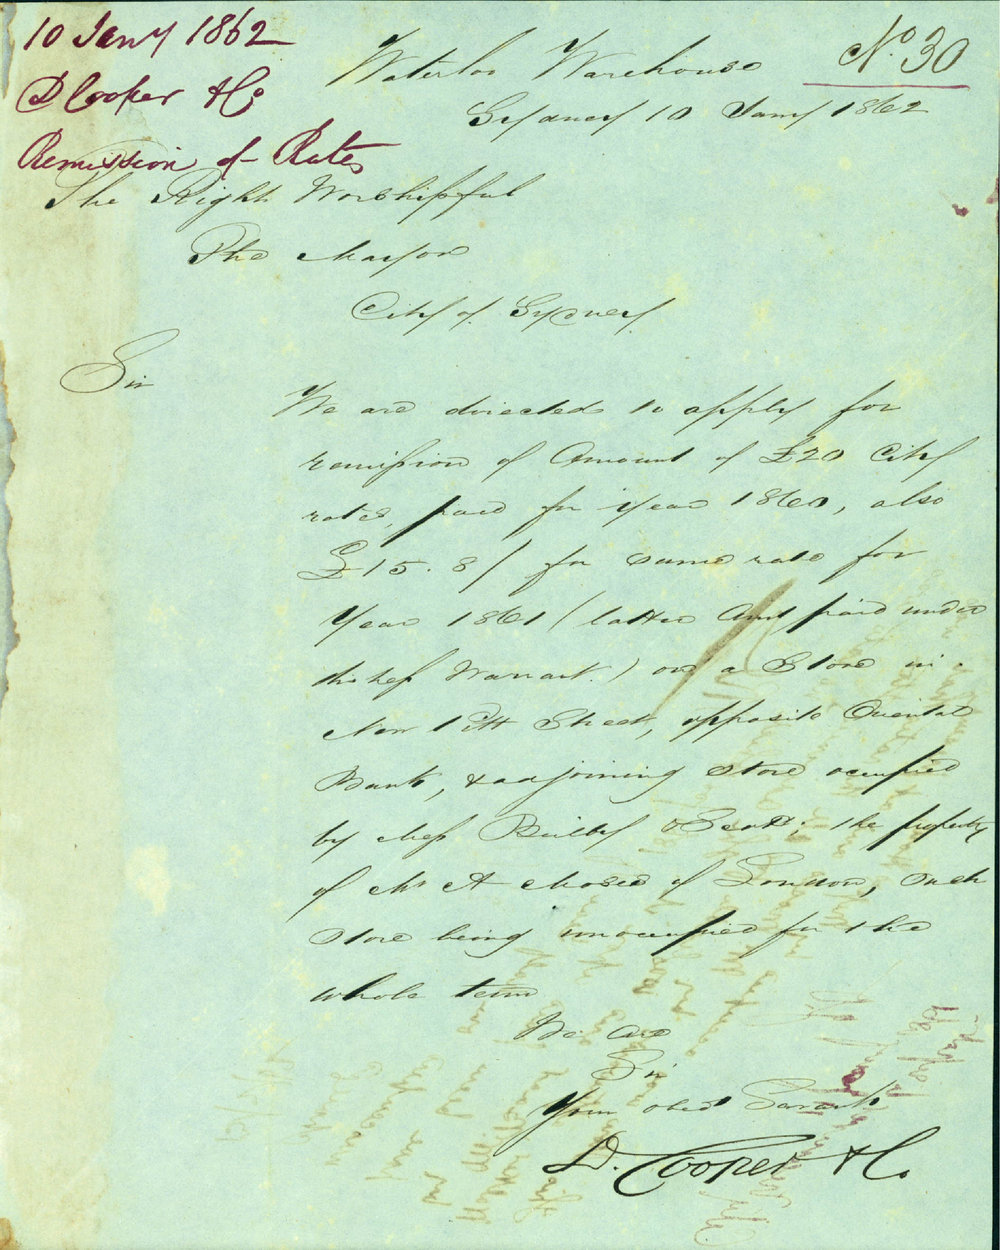 10 Jany 1862
D Cooper & Co
Remission of Rates
No. 30
Waterloo Warehouse
Sydney 10 Jany 1862
The Right Worshipful
The Mayor
City of Sydney
Sir
We are directed to apply for
remission of Amount of £20 City
rates, paid for year 1860, also
£15.8/ for same rate for
year 1861 (latter Amt paid under
Warrant.) on a Store in
New Pitt Street, opposite Oriental
Bank, & adjoining Store occupied
by Mess & Scott; the property
of Mr A Moses of London, Such
store being unoccupied for the
whole term
We are
Sir
Your obed Servants
D. Cooper & Co.